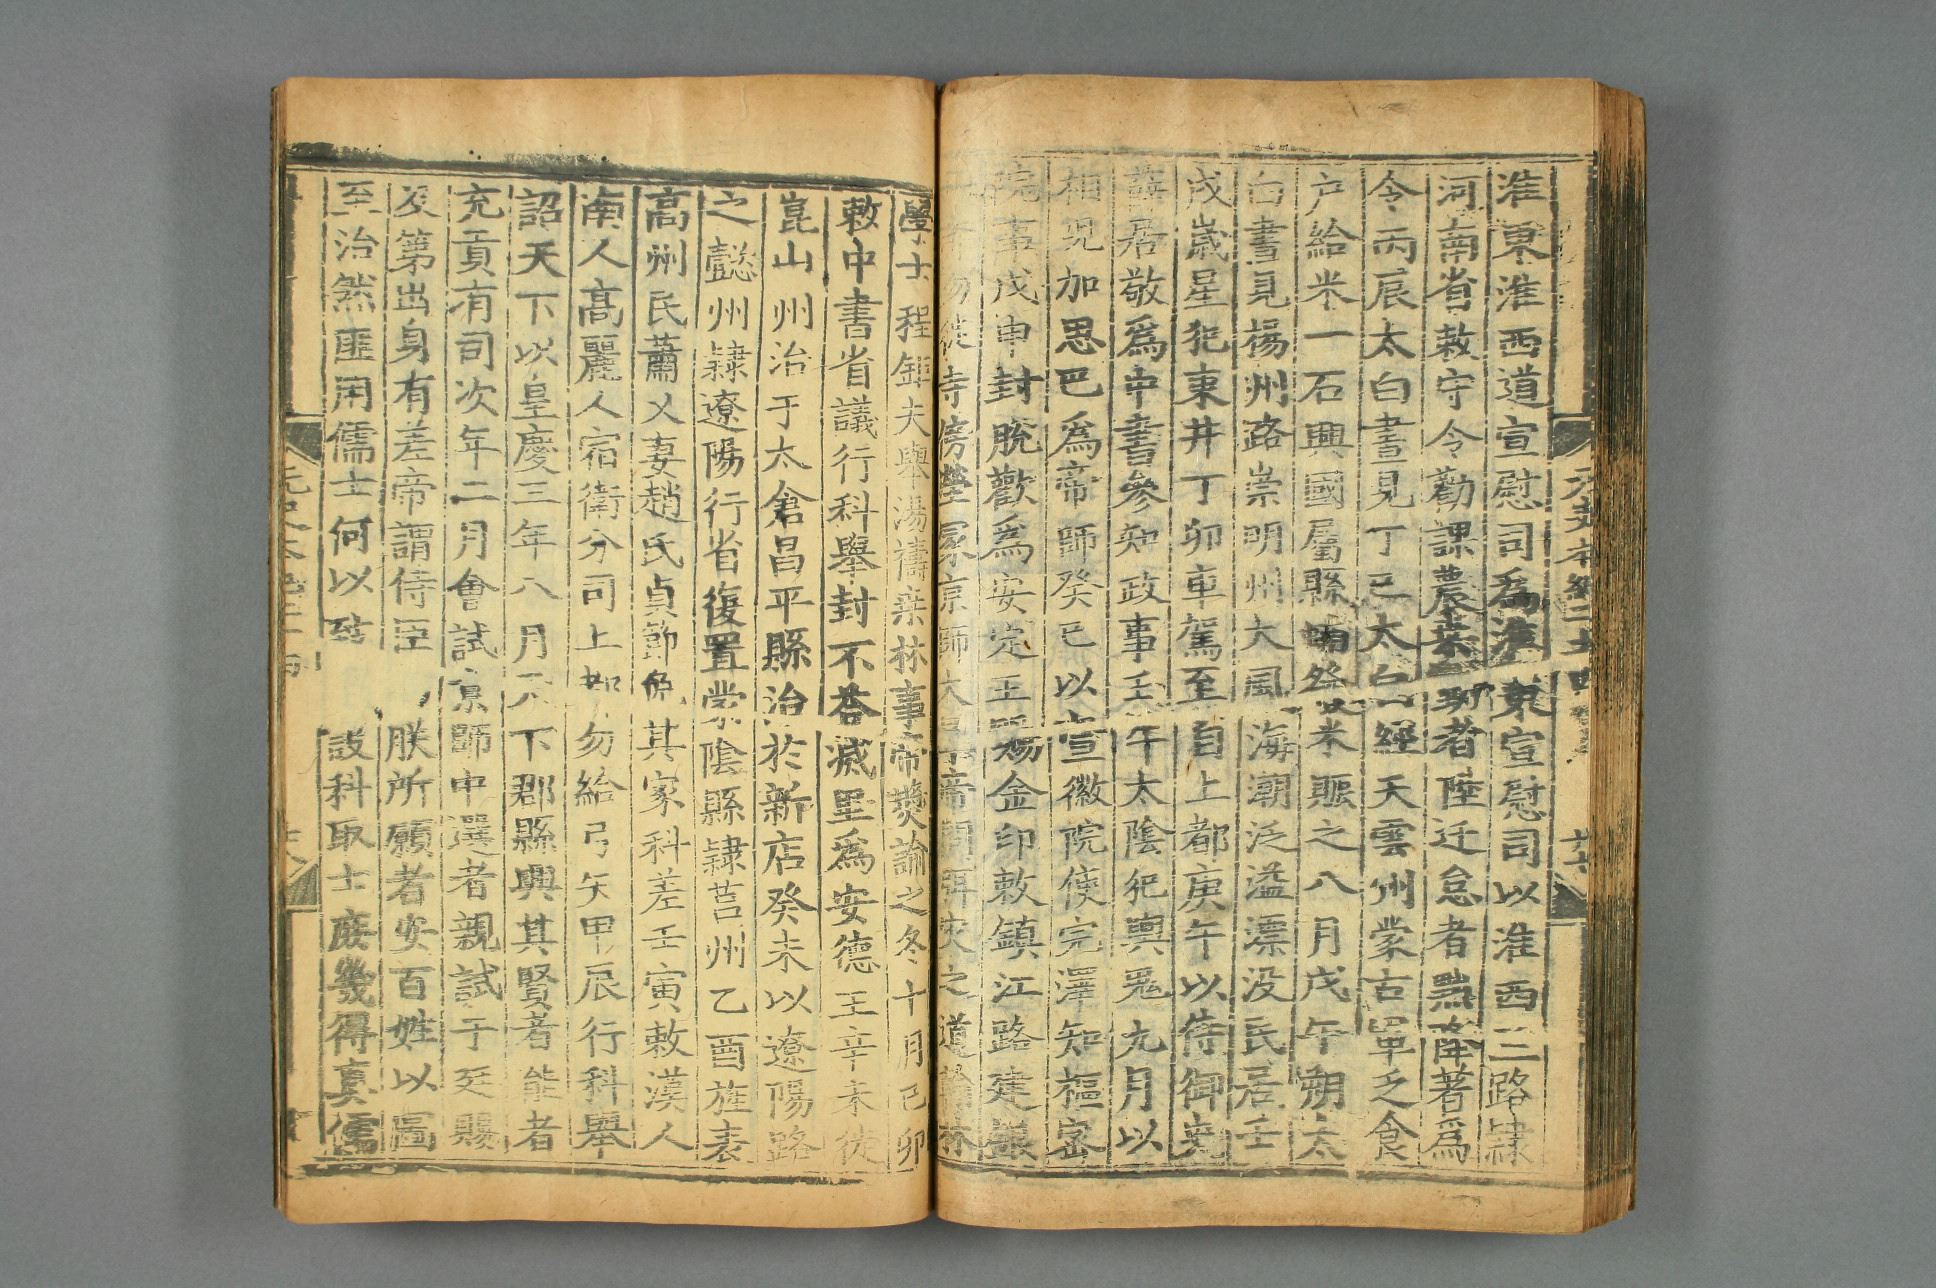 淮東淮西道宣慰司爲淮東宣慰司以淮西三路隸
河南省敕守令勸課農桑勤者陞迁怠者黜降著爲
令丙辰太白晝見丁巳太白經天雲州蒙古軍乏食
户給米一石興國屬縣蝻發米賑之八月戊午朔太
白晝見楊州路崇明州大風海潮泛溢漂没民居壬
戌歲星犯東井丁卯車駕至自上都庚午以侍御史
薛居敬爲中書參知政事壬午太陰犯輿鬼九月以
相兒加思巴爲帝師癸巳以宣徽院使完澤知樞密
院事戊申封脫歡爲安定王賜金印敕鎮江路建銀
山寺勿徙寺傍塋冢京師大旱帝問弭灾之道翰林
學士程鉅夫舉湯禱桑林事帝奬諭之冬十月己卯
敕中書省議行科舉封不荅滅里爲安德王辛未徙
崑山州治于太倉昌平縣治於新店癸未以遼陽路
之懿州隸遼陽行省復置蒙陰縣隸莒州乙酉旌表
高州民蕭乂妻趙氏貞節免其家科差壬寅敕漢人
南人高麗人宿衛分司上都勿給弓矢甲辰行科舉
詔天下以皇慶三年八月天下郡縣興其賢者能者
充貢有司次年二月會試京師中選者親試于廷賜
及第出身有差帝謂侍臣 朕所願者安百姓以圖
至治然匪用儒士何以致 設科取士庶幾得真儒